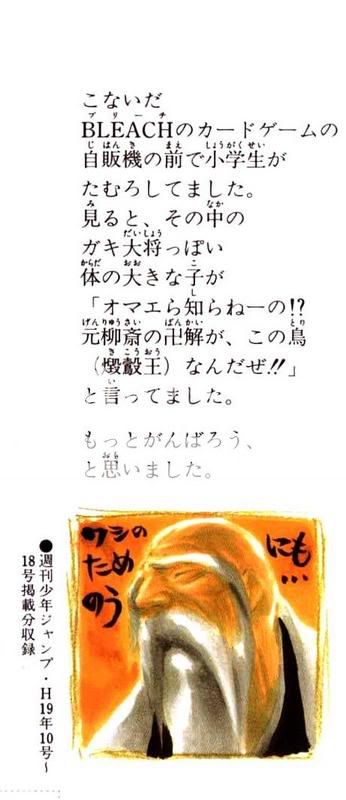 こないだ
BLEACHのカードゲームの
自販機の前で小学生が
たむろしてました。
見ると、その中の
ガキ大将っぽい
体の大きな子が
「オマエら知らねーの!?
元柳斎の卍解が、この鳥
（燬鷇王）なんだぜ!!」
と言ってました。
もっとがんばろう、
と思いました。
ワシの
ため
のう
にも…
●週刊少年ジャンプ・H19年10号〜
18号掲載分収録